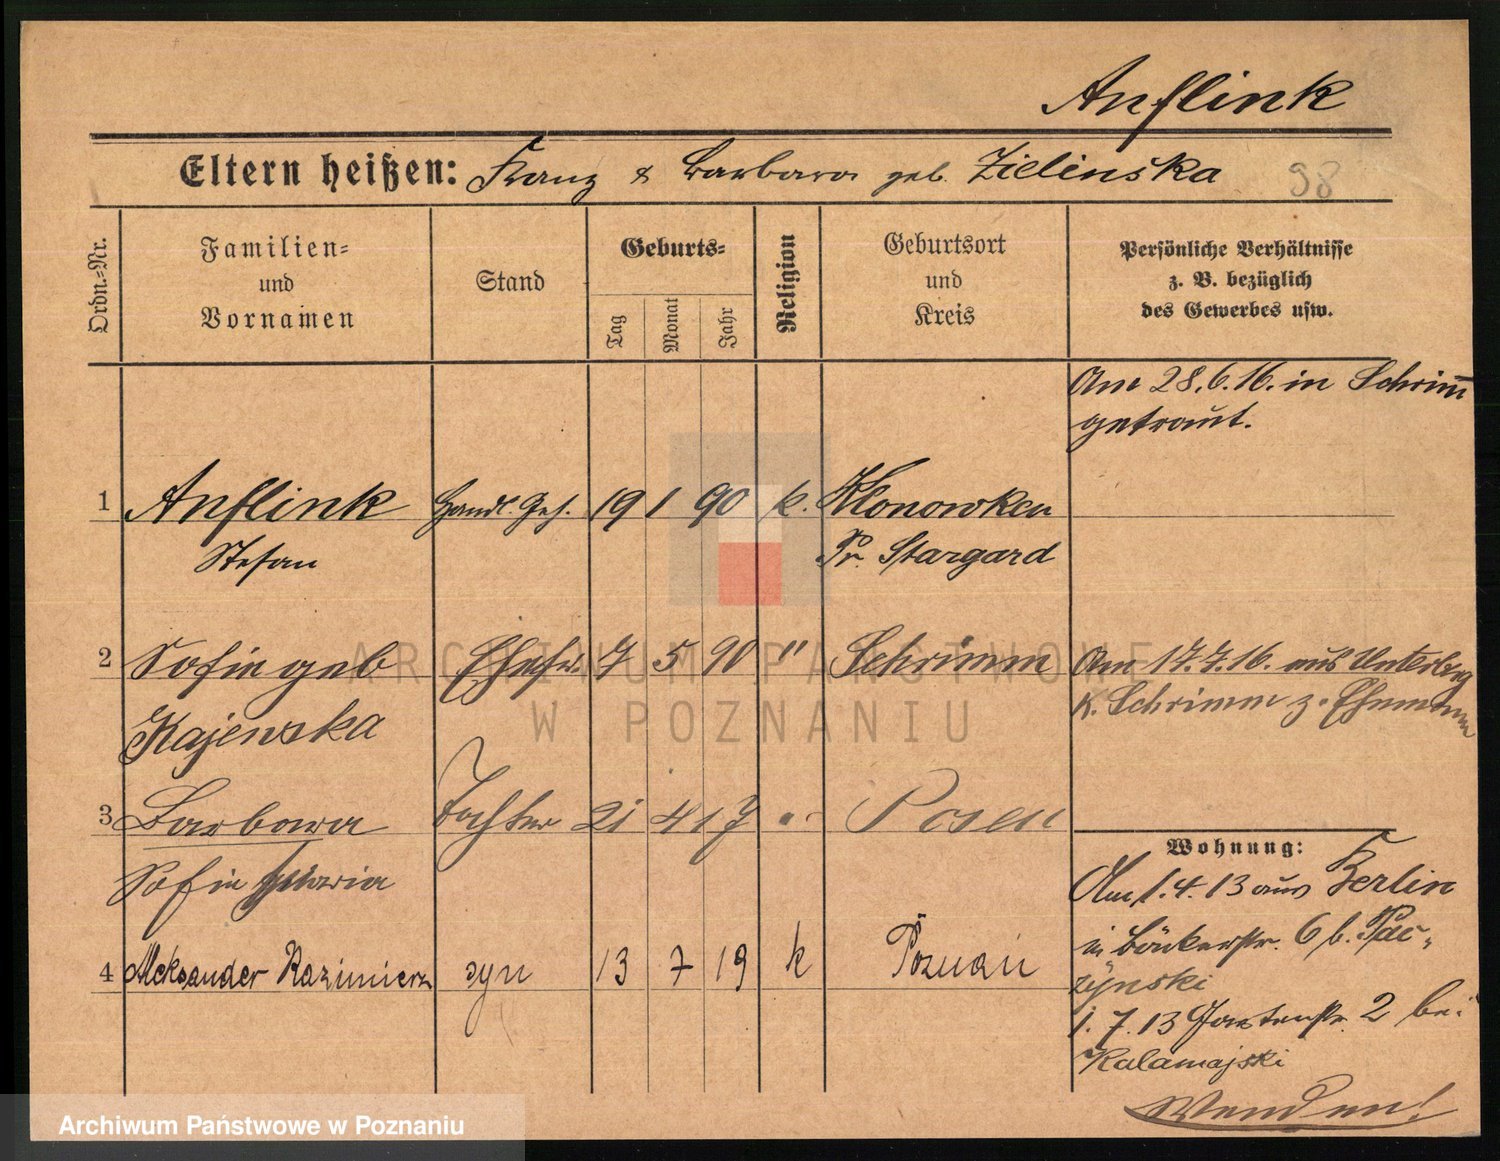 Anflink
Eltern heißen: Franz & Barbara geb. Zielinska 98
Ordn.=Nr.
Familien=
und
Vornamen
Stand
Geburts=
Tag
Monat
Jahr
Religion
Geburtsort
und
Kreis
Persönliche Verhältnisse
z. B. bezüglich
des Gewerbes usw.
Am 28.6.16. in Schrimm
getraut.
1 Anflink Handl. Geh. 19 1 90 k. Klonowken
Stefan Pr. Stargard
2 Sofie geb Ehefr. 7 5 90 " Schrimm Am 17.7.16. aus Unterberg
Kajewska K. Schrimm z. Ehemann
3 Barbara Tochter 21 4 17 " Posen
Sofie Maria
4 Aleksander Kazimierz syn 13 7 19 k Poznań
Wohnung:
Am 1.4.13 aus Berlin
in Bäckerstr. 6 b. Pac-
zynski
1.7.13 Gartenstr. 2 bei
Kalamajski
Wenden!
ARCHIWUM PAŃSTWOWE
W POZNANIU
Archiwum Państwowe w Poznaniu